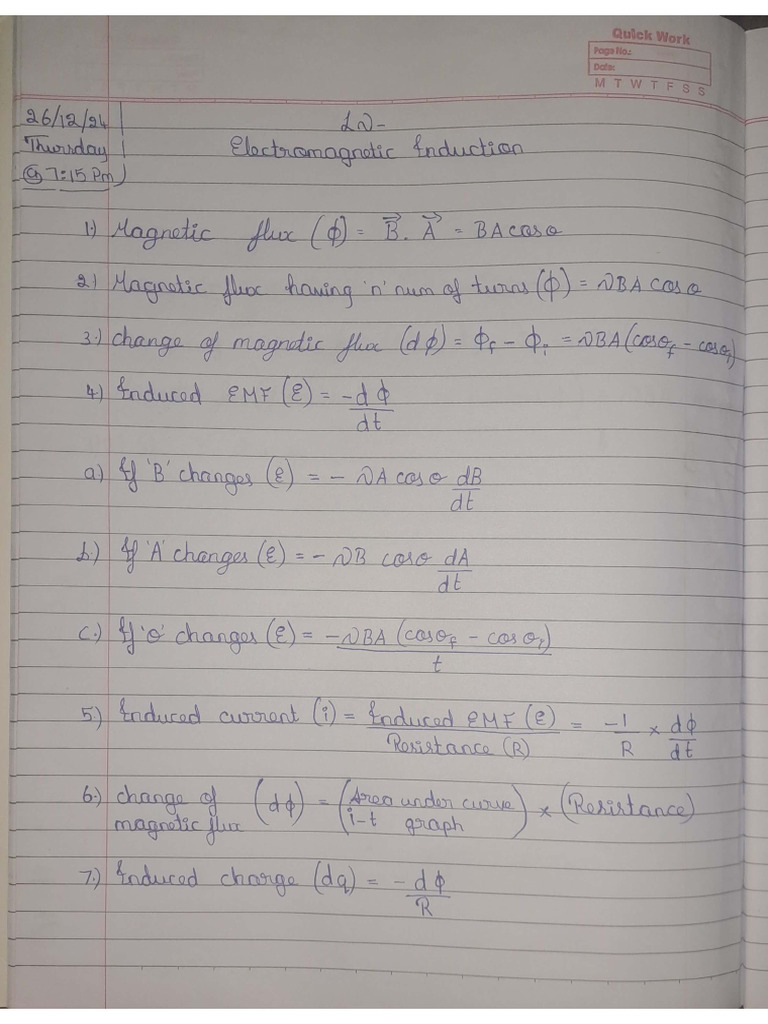 Quick Work
Page No.:
Date:
M T W T F S S
26/12/24
Thursday
@ 7:15 Pm
LN-
Electromagnetic Induction
1.) Magnetic flux (ϕ) = B⃗ . A⃗ = BA cos θ
2.) Magnetic flux having 'n' num of turns (ϕ) = NBA cos θ
3.) change of magnetic flux (dϕ) = ϕf - ϕi = NBA (cosθf - cosθi)
4.) Induced EMF (ε) = -dϕ/dt
a.) If 'B' changes (ε) = - NA cos θ dB/dt
b.) If 'A' changes (ε) = - NB cos θ dA/dt
c.) If 'θ' changes (ε) = -NBA (cosθf - cosθi)/t
5.) Induced current (i) = Induced EMF (ε)/Resistance (R) = -1/R × dϕ/dt
6.) change of magnetic flux (dϕ) = (Area under curve i-t graph) × (Resistance)
7.) Induced charge (dq) = -dϕ/R